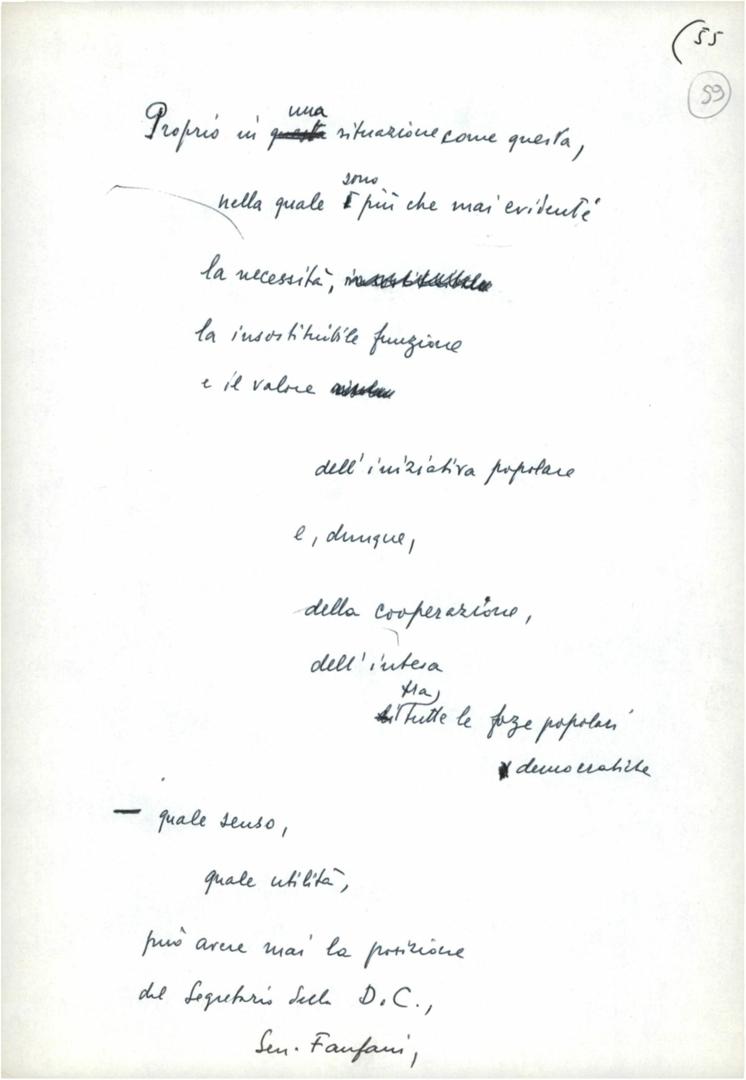 (55
59
una
Proprio in questa situazione come questa,
sono
nella quale è più che mai evidenti
la necessità,
la insostituibile funzione
e il valore
dell'iniziativa popolare
e, dunque,
della cooperazione,
dell'intesa
tra
di tutte le forze popolari
democratiche
— quale senso,
quale utilità,
può avere mai la posizione
del Segretario della D.C.,
Sen. Fanfani,